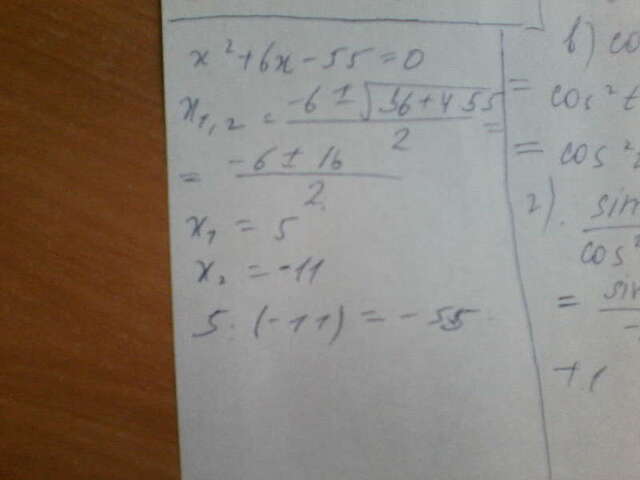 x² + 6x - 55 = 0
x₁,₂ = (-6 ± √(36 + 4·55)) / 2 =
= (-6 ± 16) / 2
x₁ = 5
x₂ = -11
5·(-11) = -55
b) co
= cos² t
= cos²
2). sin / cos²
= sin
+ 1